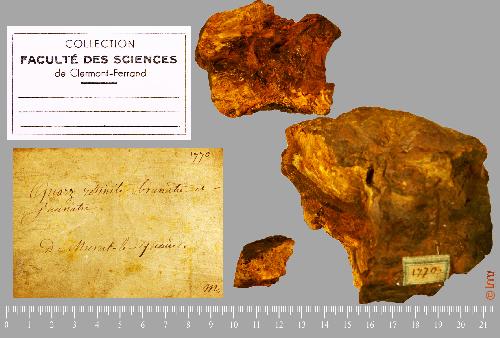 COLLECTION
FACULTÉ DES SCIENCES
de Clermont-Ferrand
1770
Quarz résinite brunâtre et
jaunâtre
De Murat-le-Quaire.
M.
1770
© LMV
0 1 2 3 4 5 6 7 8 9 10 11 12 13 14 15 16 17 18 19 20 21